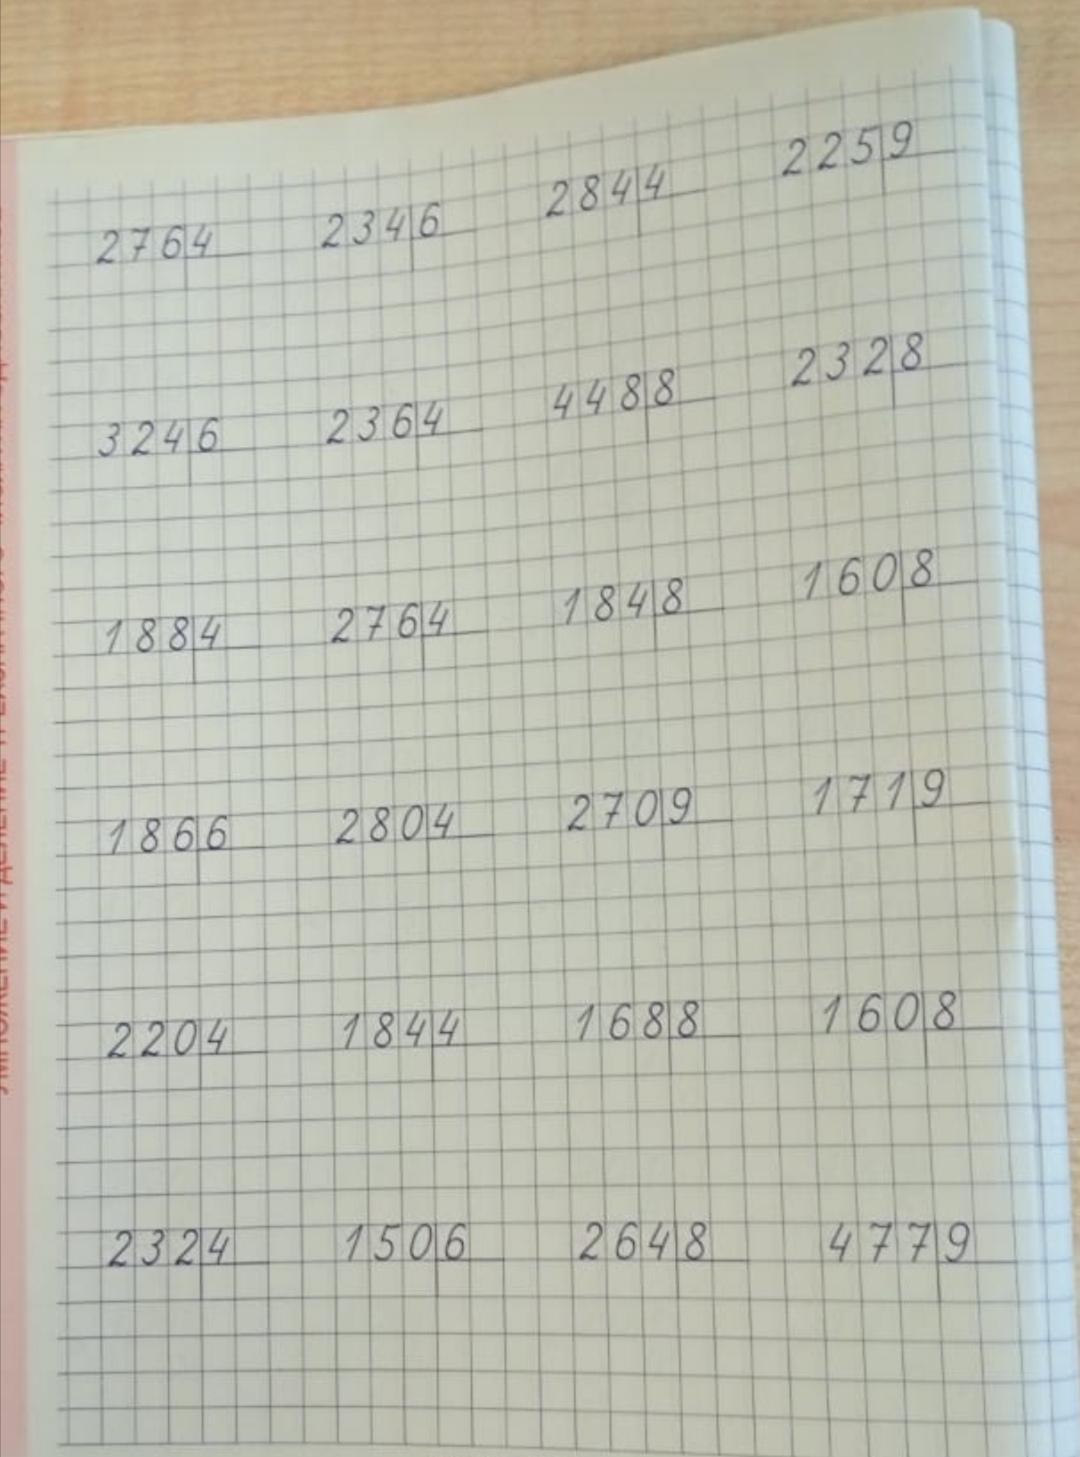 276|4 234|6 284|4 225|9
324|6 236|4 448|8 232|8
188|4 276|4 184|8 160|8
186|6 280|4 270|9 171|9
220|4 184|4 168|8 160|8
232|4 150|6 264|8 477|9
УМНОЖЕНИЕ И ДЕЛЕНИЕ